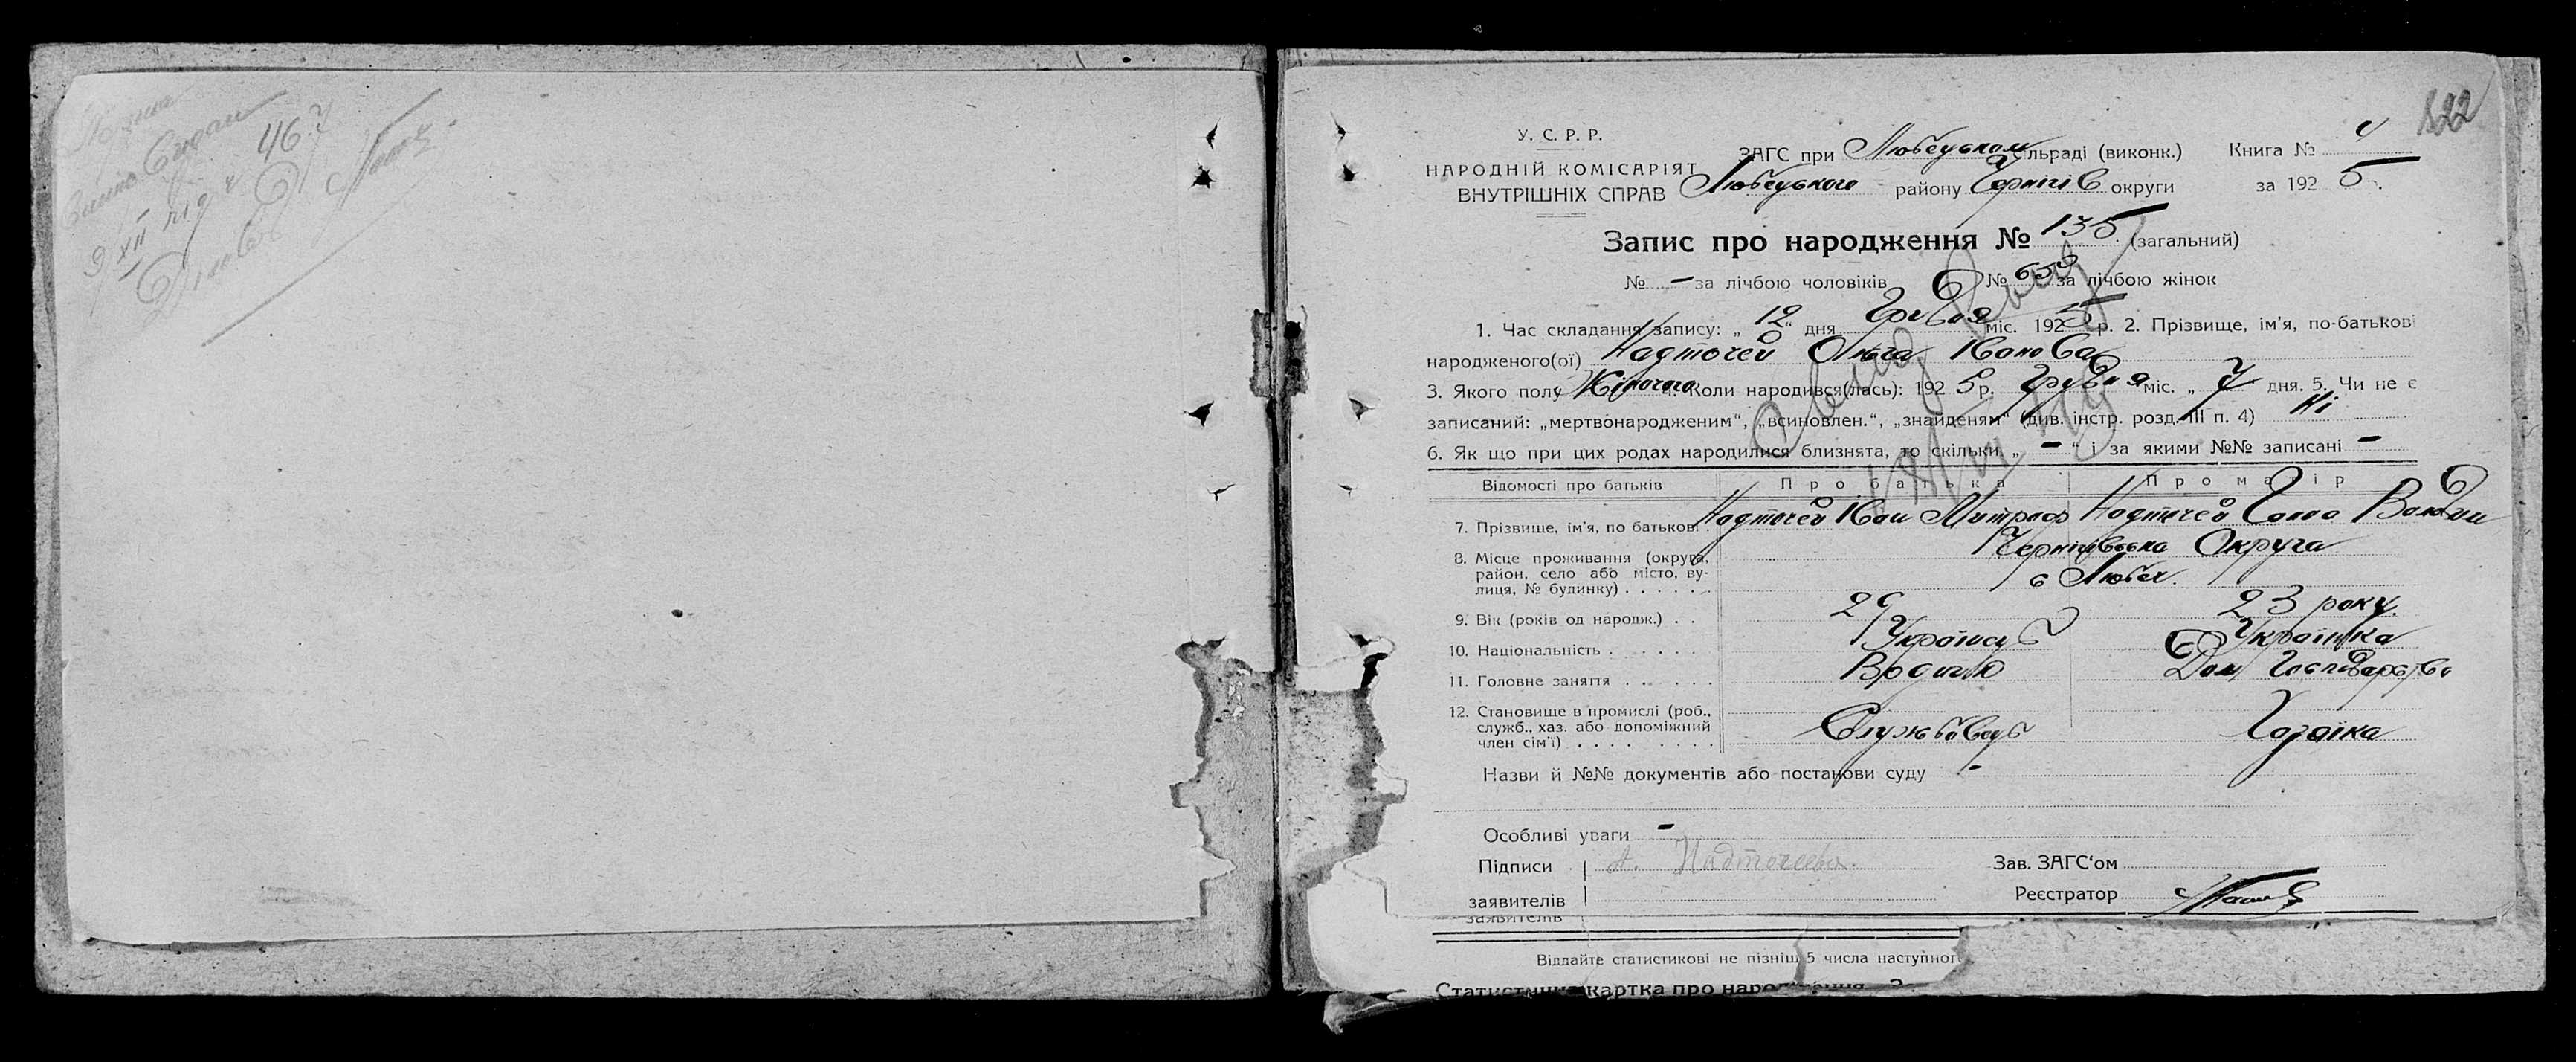 467
9 XII
122
У. С. Р. Р.
НАРОДНІЙ КОМІСАРІЯТ
ВНУТРІШНІХ СПРАВ
ЗАГС при Любецьком сільраді (виконк.) Книга № 4
Любецького району Чернігів округи за 1925.
Запис про народження № 135 (загальний)
№ - за лічбою чоловіків № 65 за лічбою жінок
1. Час складання запису: „ 12 “ дня Грудня міс. 1925 р. 2. Прізвище, ім'я, по-батькові
народженого(ої) Надточей Ольга Іванова
3. Якого полу Жіночого 4. Коли народився(лась): 1925 р. Грудня міс. „ 7 дня. 5. Чи не є
записаний: „мертвонародженим“, „всиновлен.“, „знайденям“ (див. інстр. розд. III п. 4) Ні
6. Як що при цих родах народилися близнята, то скільки „ - “ і за якими №№ записані -
Відомості про батьків Про батька Про матір
7. Прізвище, ім'я, по батькові Надточей Іван Митроф Надточей
8. Місце проживання (округа, район, село або місто, вулиця, № будинку) Чернігівська Округа
с Любеч.
9. Вік (років од народж.) 29 23 року.
10. Національність Українець Українка
11. Головне заняття Дом Господарство
12. Становище в промислі (роб., служб., хаз. або допоміжний член сім'ї) Службовець Хазяїка
Назви й №№ документів або постанови суду -
Особливі уваги -
Підписи А. Надточеева. Зав. ЗАГС'ом
заявителів Реєстратор
заявителів
Віддайте статистикові не пізніш 5 числа наступног
Статистична картка про народження